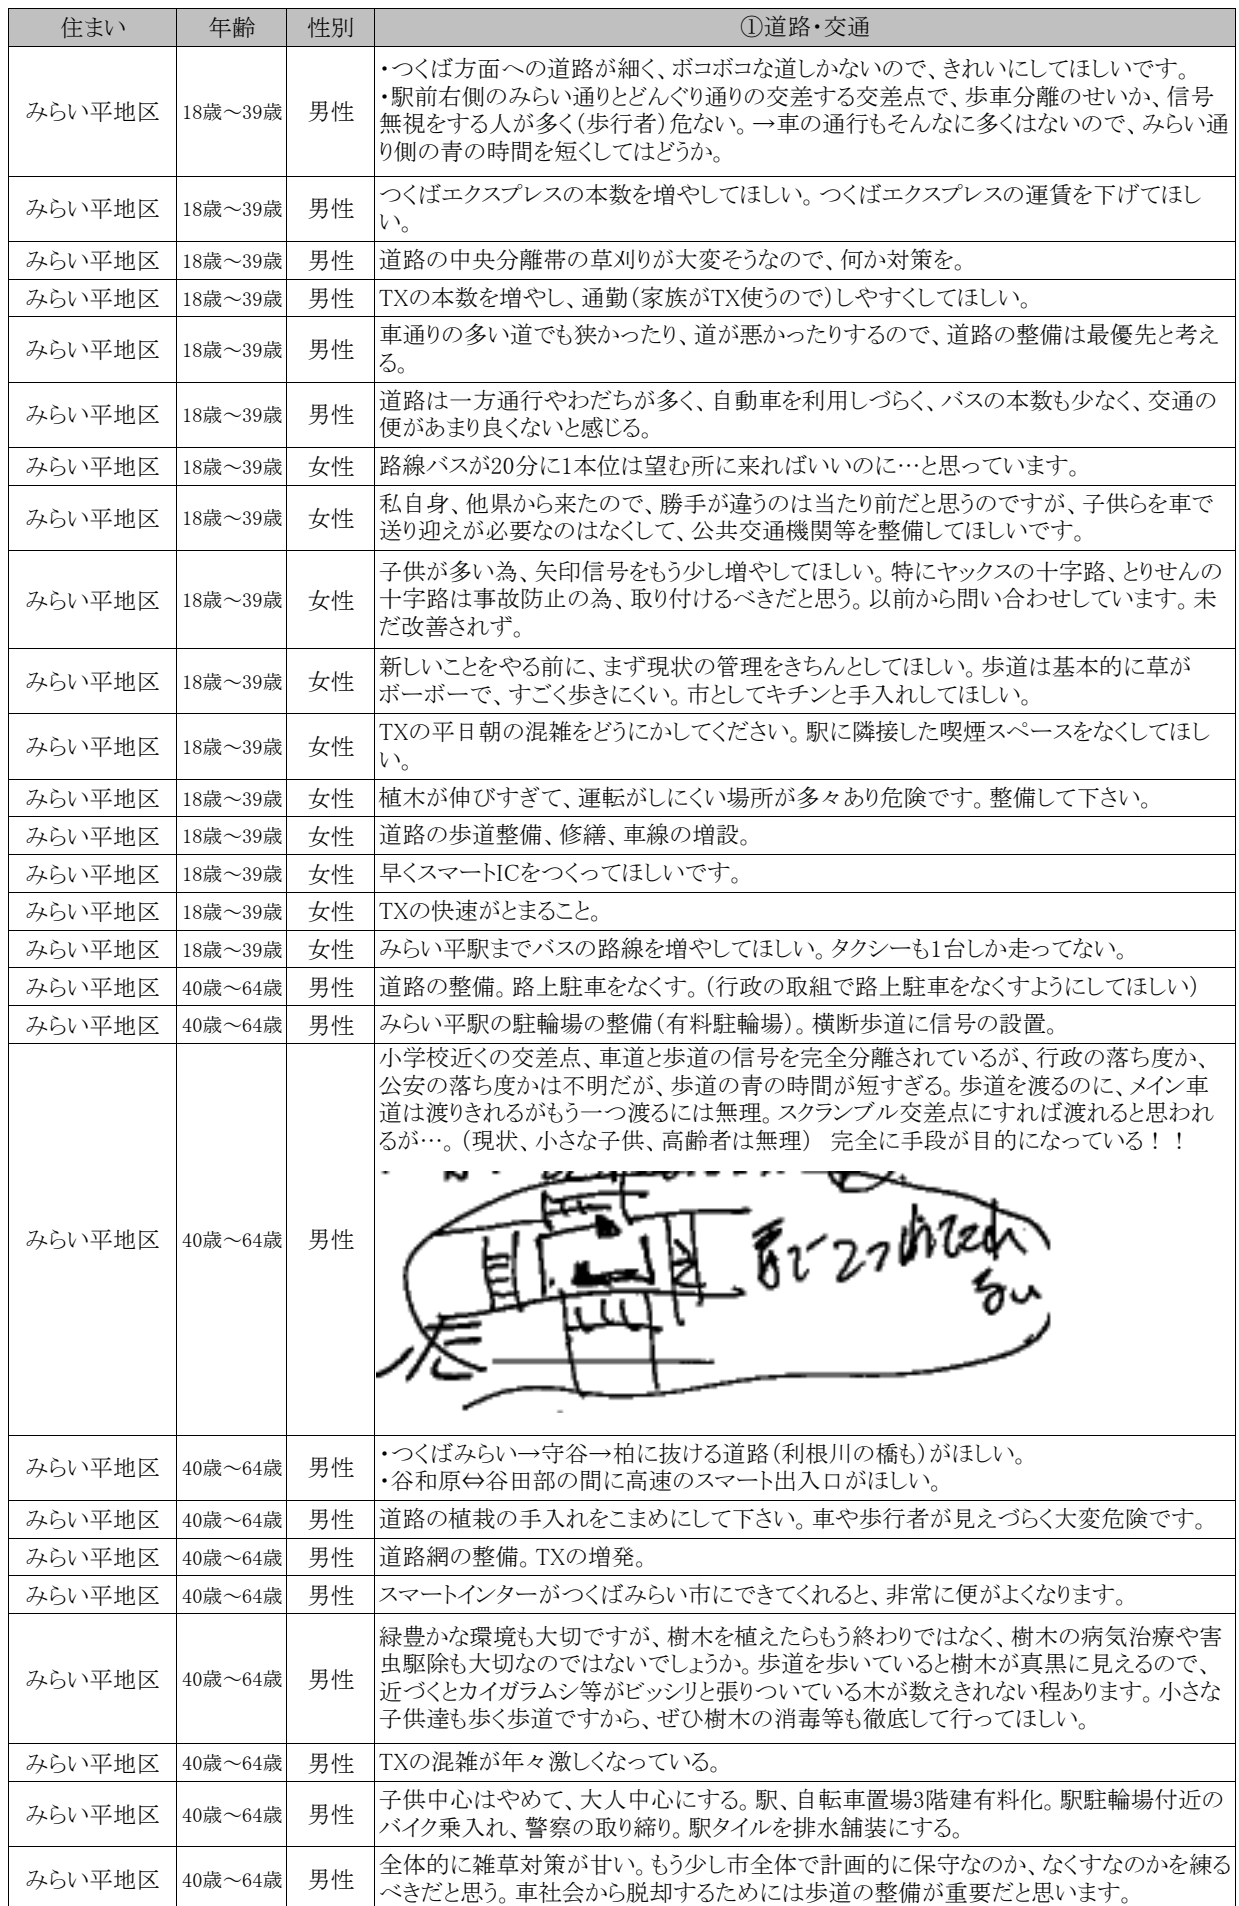 住まい 年齢 性別 ①道路・交通
みらい平地区 18歳～39歳 男性 ・つくば方面への道路が細く、ボコボコな道しかないので、きれいにしてほしいです。
・駅前右側のみらい通りとどんぐり通りの交差する交差点で、歩車分離のせいか、信号
無視をする人が多く（歩行者）危ない。→車の通行もそんなに多くはないので、みらい通
り側の青の時間を短くしてはどうか。
みらい平地区 18歳～39歳 男性 つくばエクスプレスの本数を増やしてほしい。つくばエクスプレスの運賃を下げてほし
い。
みらい平地区 18歳～39歳 男性 道路の中央分離帯の草刈りが大変そうなので、何か対策を。
みらい平地区 18歳～39歳 男性 TXの本数を増やし、通勤（家族がTX使うので）しやすくしてほしい。
みらい平地区 18歳～39歳 男性 車通りの多い道でも狭かったり、道が悪かったりするので、道路の整備は最優先と考え
る。
みらい平地区 18歳～39歳 男性 道路は一方通行やわだちが多く、自動車を利用しづらく、バスの本数も少なく、交通の
便があまり良くないと感じる。
みらい平地区 18歳～39歳 女性 路線バスが20分に1本位は望む所に来ればいいのに…と思っています。
みらい平地区 18歳～39歳 女性 私自身、他県から来たので、勝手が違うのは当たり前だと思うのですが、子供らを車で
送り迎えが必要なのはなくして、公共交通機関等を整備してほしいです。
みらい平地区 18歳～39歳 女性 子供が多い為、矢印信号をもう少し増やしてほしい。特にヤックスの十字路、とりせんの
十字路は事故防止の為、取り付けるべきだと思う。以前から問い合わせしています。未
だ改善されず。
みらい平地区 18歳～39歳 女性 新しいことをやる前に、まず現状の管理をきちんとしてほしい。歩道は基本的に草が
ボーボーで、すごく歩きにくい。市としてキチンと手入れしてほしい。
みらい平地区 18歳～39歳 女性 TXの平日朝の混雑をどうにかしてください。駅に隣接した喫煙スペースをなくしてほし
い。
みらい平地区 18歳～39歳 女性 植木が伸びすぎて、運転がしにくい場所が多々あり危険です。整備して下さい。
みらい平地区 18歳～39歳 女性 道路の歩道整備、修繕、車線の増設。
みらい平地区 18歳～39歳 女性 早くスマートICをつくってほしいです。
みらい平地区 18歳～39歳 女性 TXの快速がとまること。
みらい平地区 18歳～39歳 女性 みらい平駅までバスの路線を増やしてほしい。タクシーも1台しか走ってない。
みらい平地区 40歳～64歳 男性 道路の整備。路上駐車をなくす。（行政の取組で路上駐車をなくすようにしてほしい）
みらい平地区 40歳～64歳 男性 みらい平駅の駐輪場の整備（有料駐輪場）。横断歩道に信号の設置。
みらい平地区 40歳～64歳 男性 小学校近くの交差点、車道と歩道の信号を完全分離されているが、行政の落ち度か、
公安の落ち度かは不明だが、歩道の青の時間が短すぎる。歩道を渡るのに、メイン車
道は渡りきれるがもう一つ渡るには無理。スクランブル交差点にすれば渡れると思われ
るが…。（現状、小さな子供、高齢者は無理）　完全に手段が目的になっている！！
青で2つ
みらい平地区 40歳～64歳 男性 ・つくばみらい→守谷→柏に抜ける道路（利根川の橋も）がほしい。
・谷和原⇔谷田部の間に高速のスマート出入口がほしい。
みらい平地区 40歳～64歳 男性 道路の植栽の手入れをこまめにして下さい。車や歩行者が見えづらく大変危険です。
みらい平地区 40歳～64歳 男性 道路網の整備。TXの増発。
みらい平地区 40歳～64歳 男性 スマートインターがつくばみらい市にできてくれると、非常に便がよくなります。
みらい平地区 40歳～64歳 男性 緑豊かな環境も大切ですが、樹木を植えたらもう終わりではなく、樹木の病気治療や害
虫駆除も大切なのではないでしょうか。歩道を歩いていると樹木が真黒に見えるので、
近づくとカイガラムシ等がビッシリと張りついている木が数えきれない程あります。小さな
子供達も歩く歩道ですから、ぜひ樹木の消毒等も徹底して行ってほしい。
みらい平地区 40歳～64歳 男性 TXの混雑が年々激しくなっている。
みらい平地区 40歳～64歳 男性 子供中心はやめて、大人中心にする。駅、自転車置場3階建有料化。駅駐輪場付近の
バイク乗入れ、警察の取り締り。駅タイルを排水舗装にする。
みらい平地区 40歳～64歳 男性 全体的に雑草対策が甘い。もう少し市全体で計画的に保守なのか、なくすなのかを練る
べきだと思う。車社会から脱却するためには歩道の整備が重要だと思います。